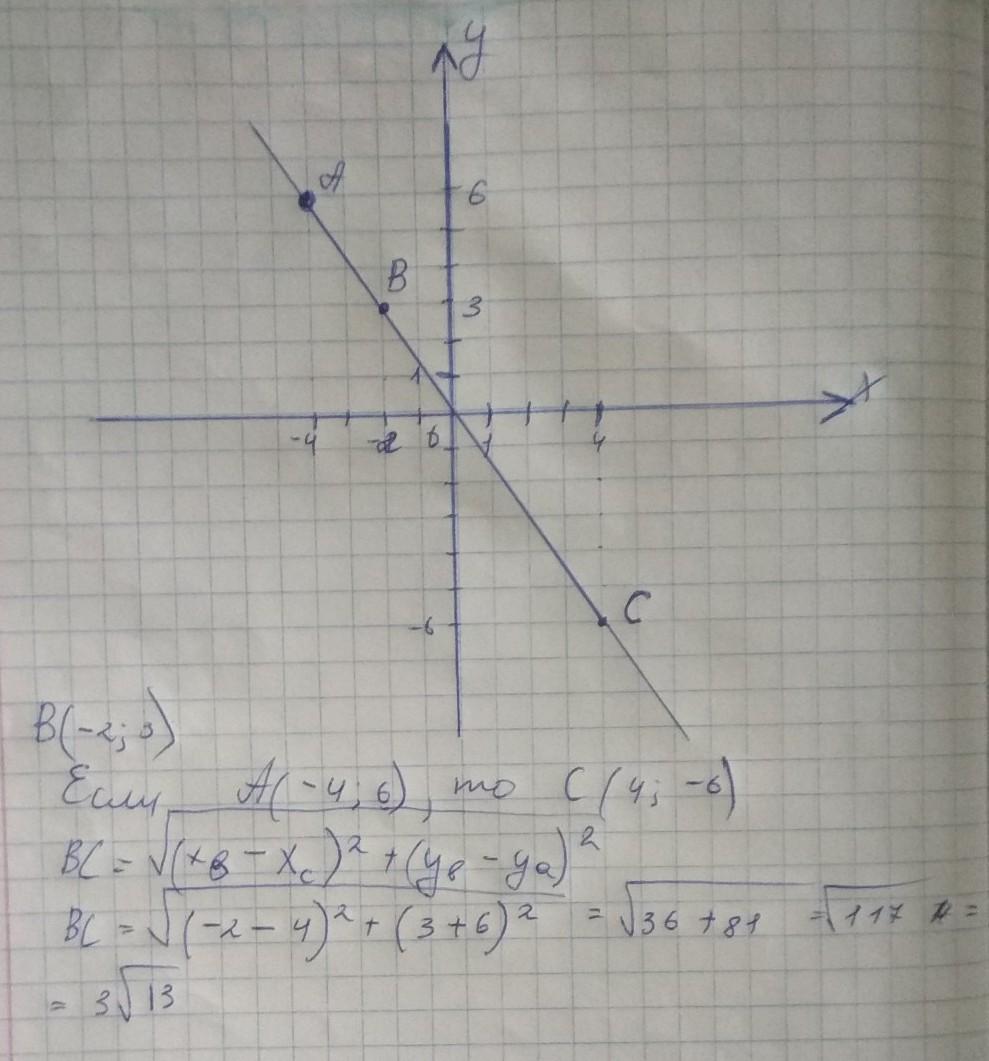 y
A
6
B
3
1
x
-4 -2 0 1 4
-6 C
B(-2; 3)
Если A(-4; 6), то C(4; -6)
BC = √(xв - xc)² + (yв - ya)²
BC = √(-2 - 4)² + (3 + 6)² = √36 + 81 = √117 =
= 3√13